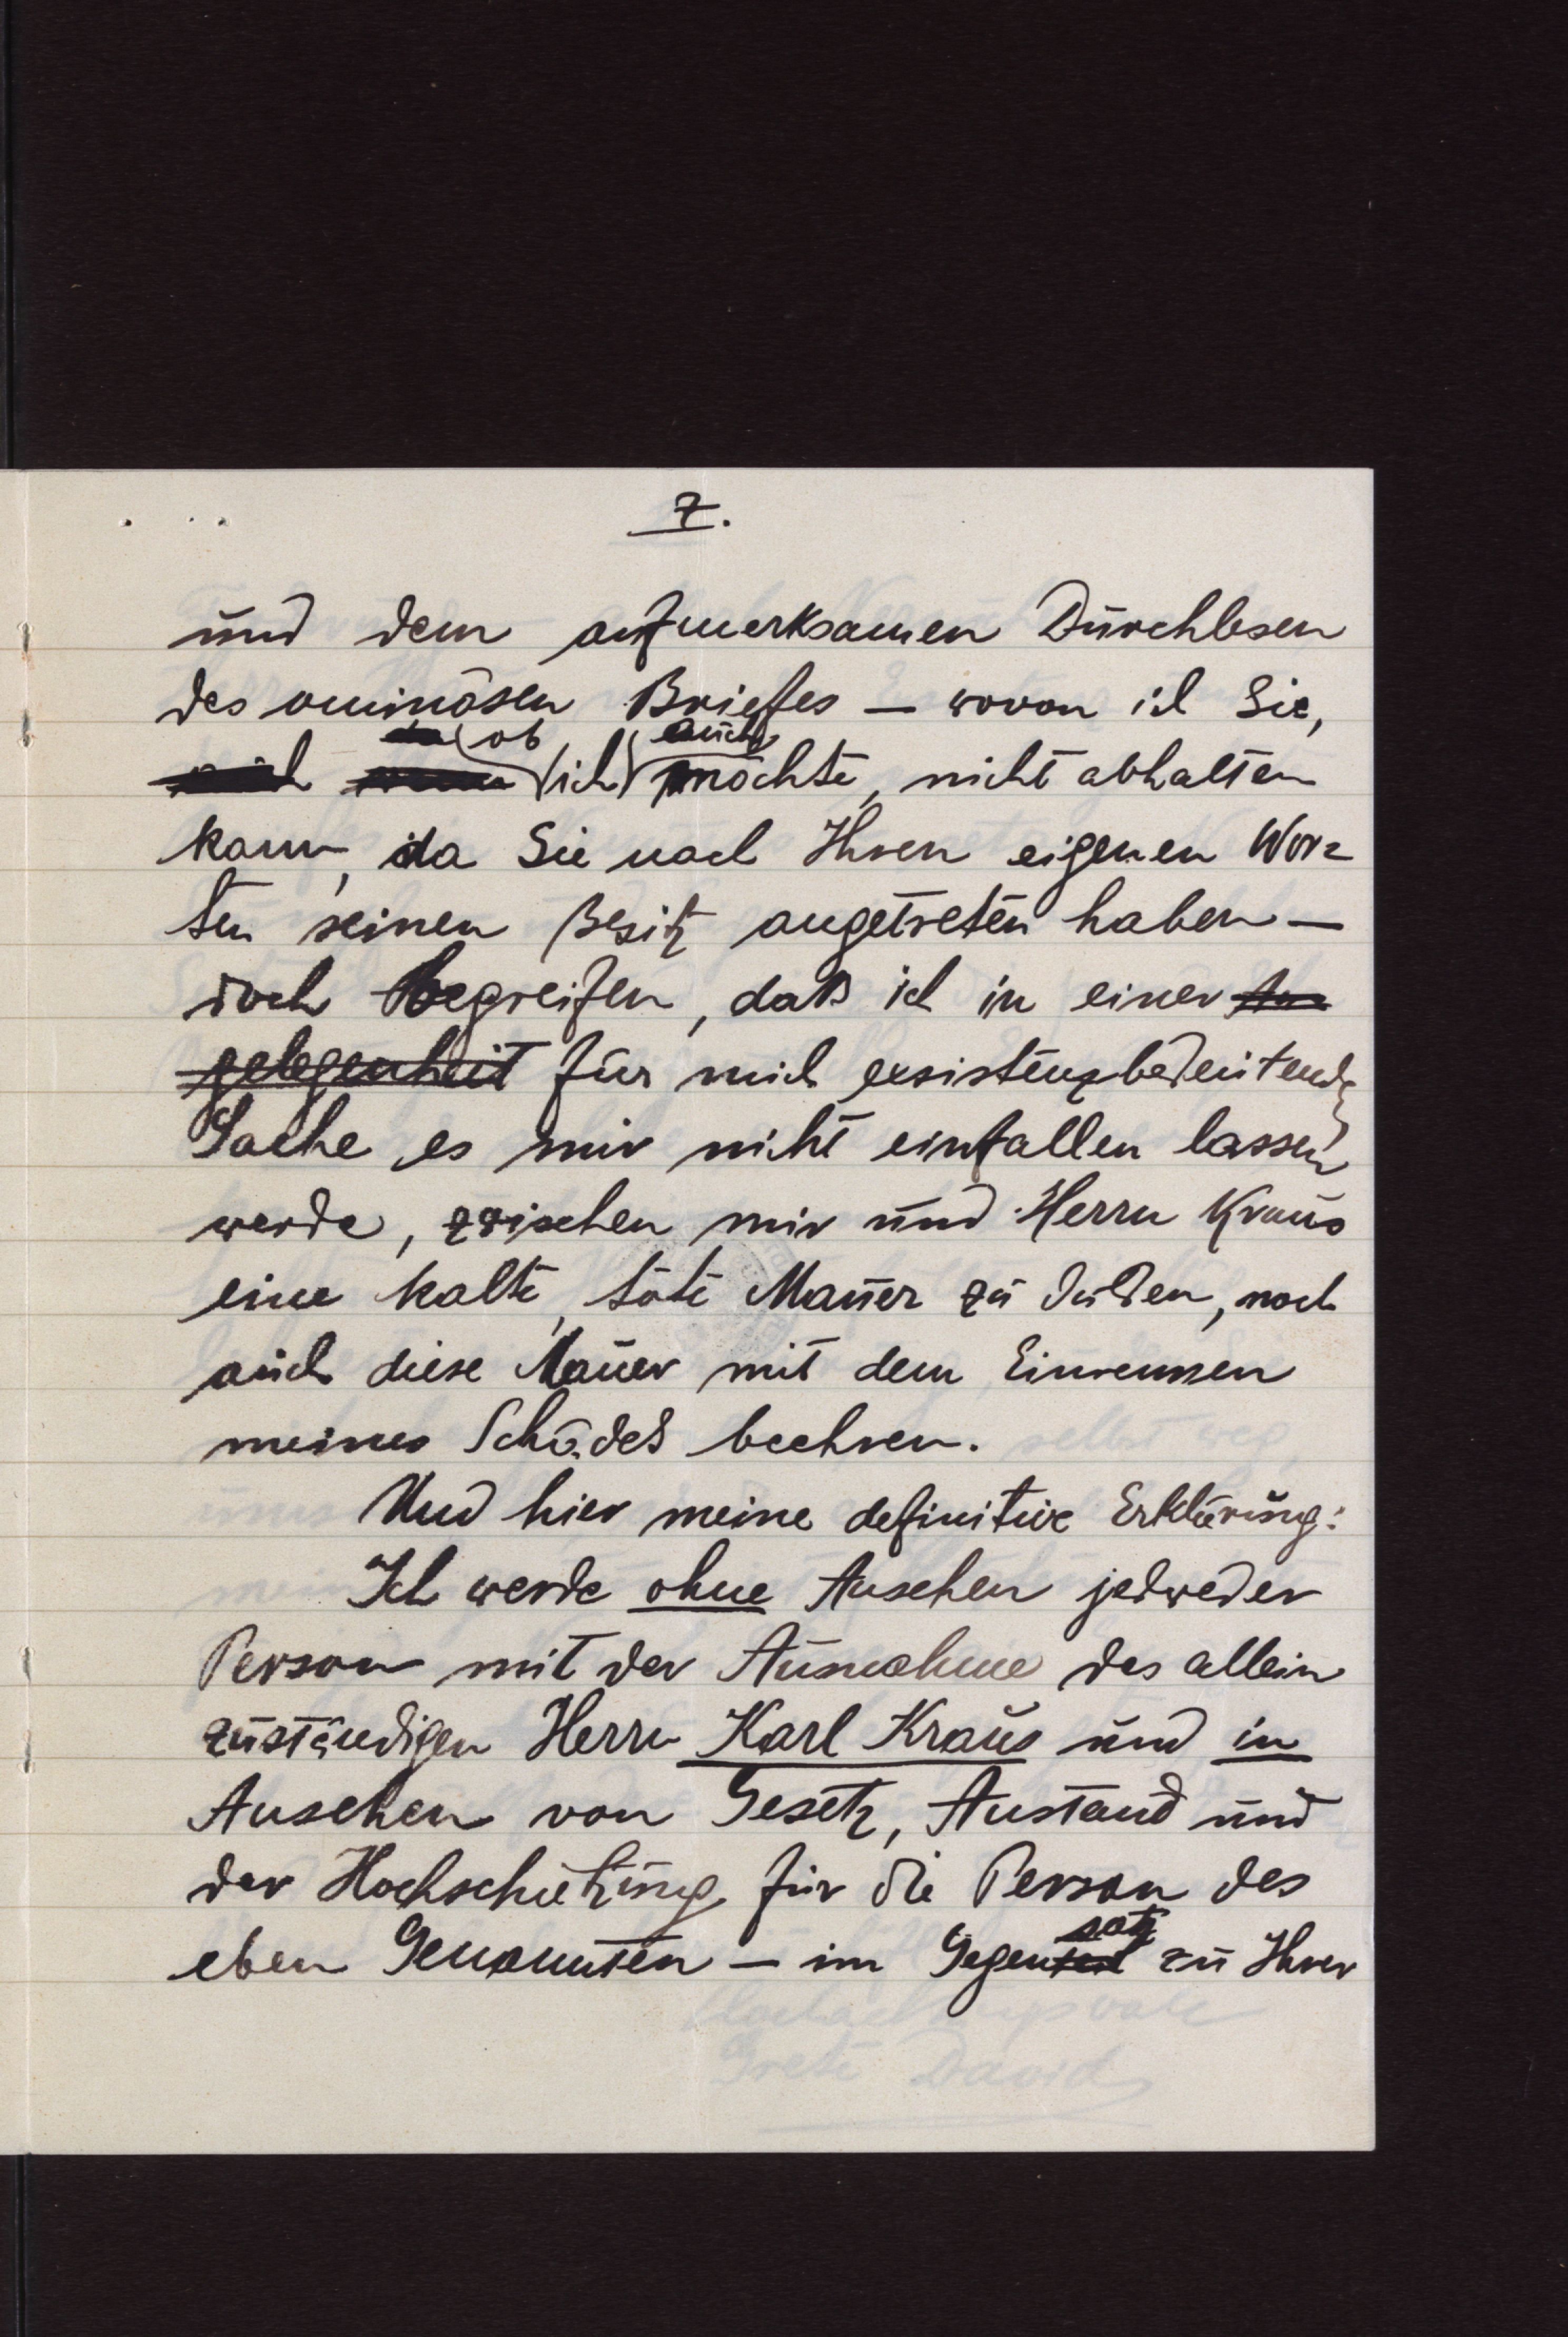 7.
und dem aufmerksamen Durchlesen
des ominösen Briefes — wovon ich Sie,
ob ich auch möchte, nicht abhalten
kann, da Sie nach Ihren eigenen Wor=
ten seinen Besitz angetreten haben —
doch begreifen, daß ich in einer An=
gelegenheit für mich exsistenzbedeutende
Sache es mir nicht einfallen lassen
werde, zwischen mir und Herrn Kraus
eine kalte, tote Mauer zu dulden, noch
auch diese Mauer mit dem Einrennen
meines Schädels beehren.
Und hier meine definitive Erklärung:
Ich werde ohne Ansehen jedweder
Person mit der Ausnahme des allein
zuständigen Herrn Karl Kraus und in
Ansehen von Gesetz, Anstand und
der Hochschätzung für die Person des
eben Genannten — im Gegensatz zu Ihrer